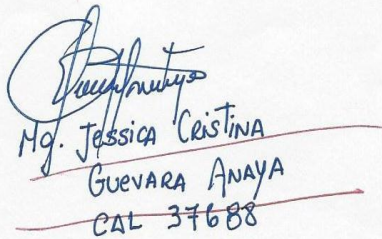 Mg. Jessica Cristina
Guevara Anaya
CAL 37688